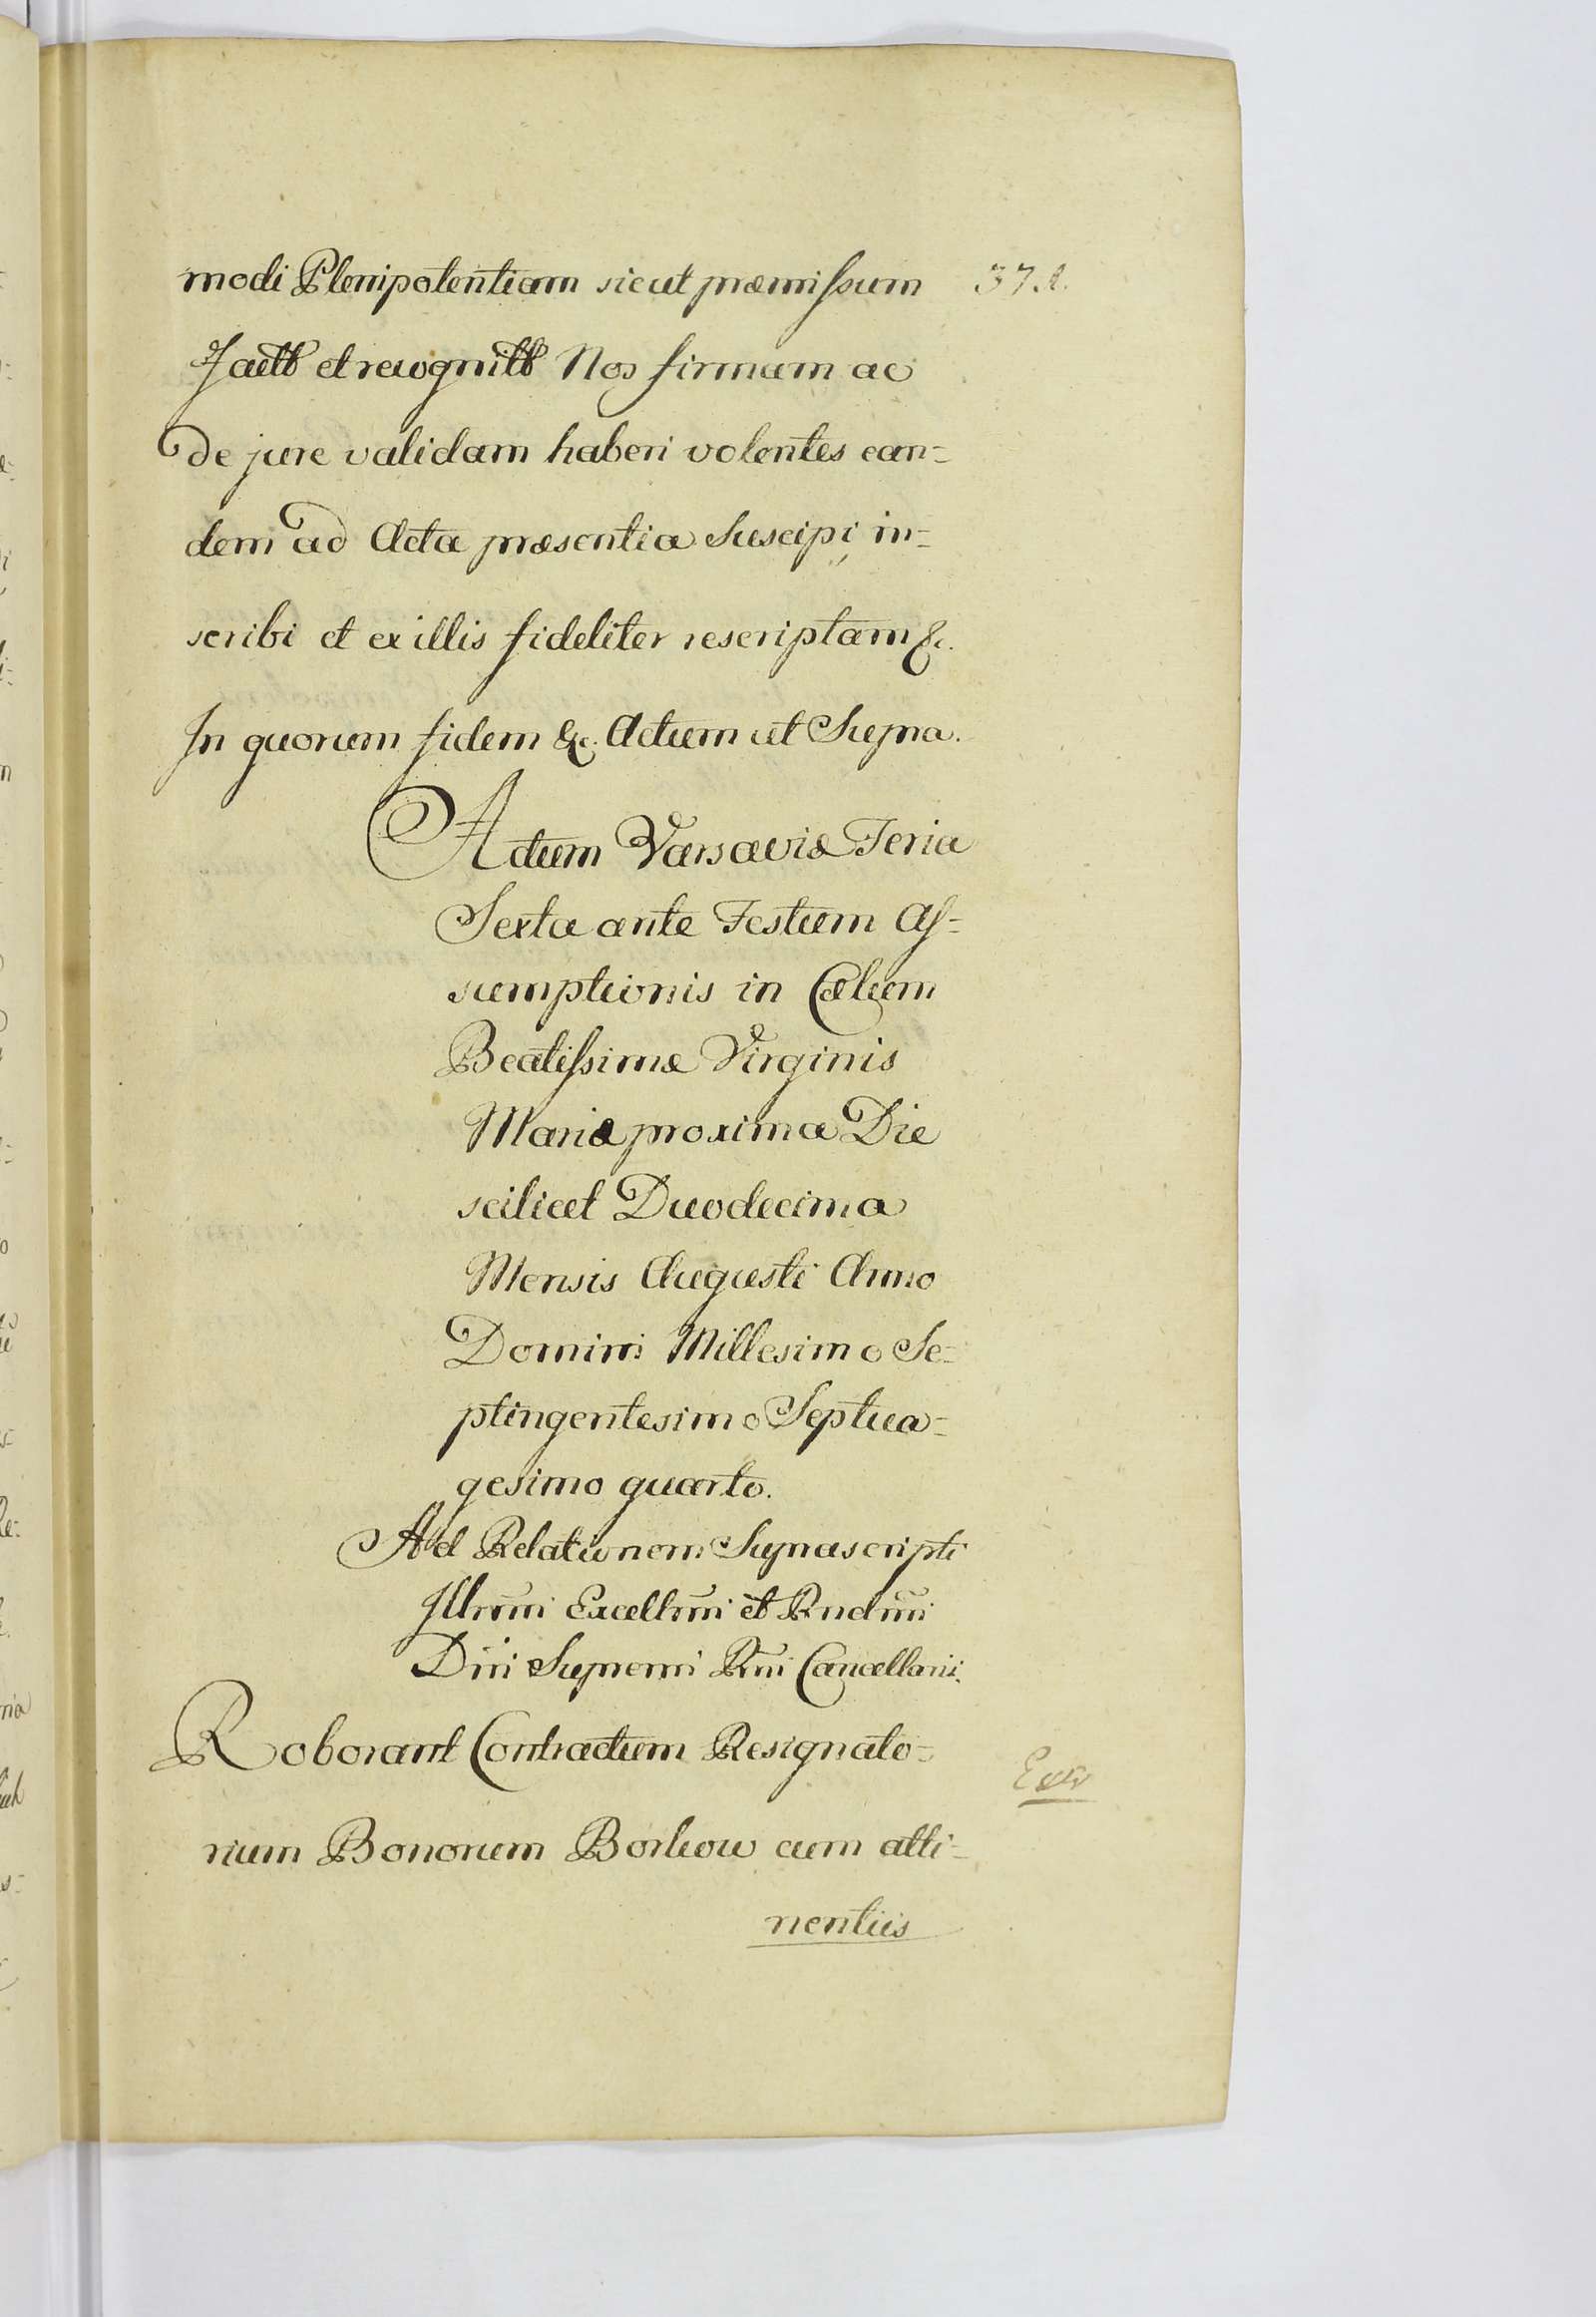 modi Plenipotentiam sicut præmissum 371.
factb et recognitb Nos firmam ac
de jure validam haberi volentes ean=
dem ad Acta præsentia Suscipi, in=
scribi et ex illis fideliter rescriptam &c.
In quorum fidem &c. Actum ut Supra.
Actum Varsaviæ Feria
Sexta ante Festum As=
sumptionis in Cœlum
Beatissimæ Virginis
Mariæ proxima Die
scilicet Duodecima
Mensis Augusti Anno
Domini Millesimo Se=
ptingentesimo Septua=
gesimo quarto.
Ad Relationem Suprascripti
Illrmi Excellmi et Rndmi
Dni Supremi Rni Cancellarii.
Roborant Contractum Resignato=
rium Bonorum Borkow cum atti=
nentiis